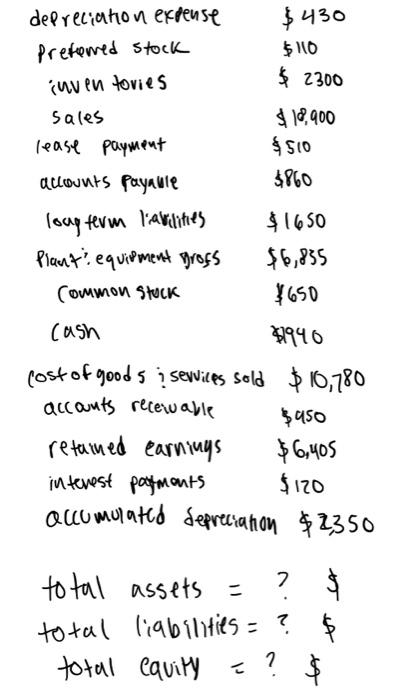 depreciation expense $430
Preferred stock $110
inventories $ 2300
Sales $18,900
lease payment $510
accounts Payable $860
long term liabilities $1650
Plant & equipment gross $6,835
Common Stock $650
Cash $1940
Cost of goods & services sold $10,780
accounts receivable $950
retained earnings $6,405
interest payments $120
accumulated depreciation $2,350
total assets = ? $
total liabilities = ? $
total equity = ? $